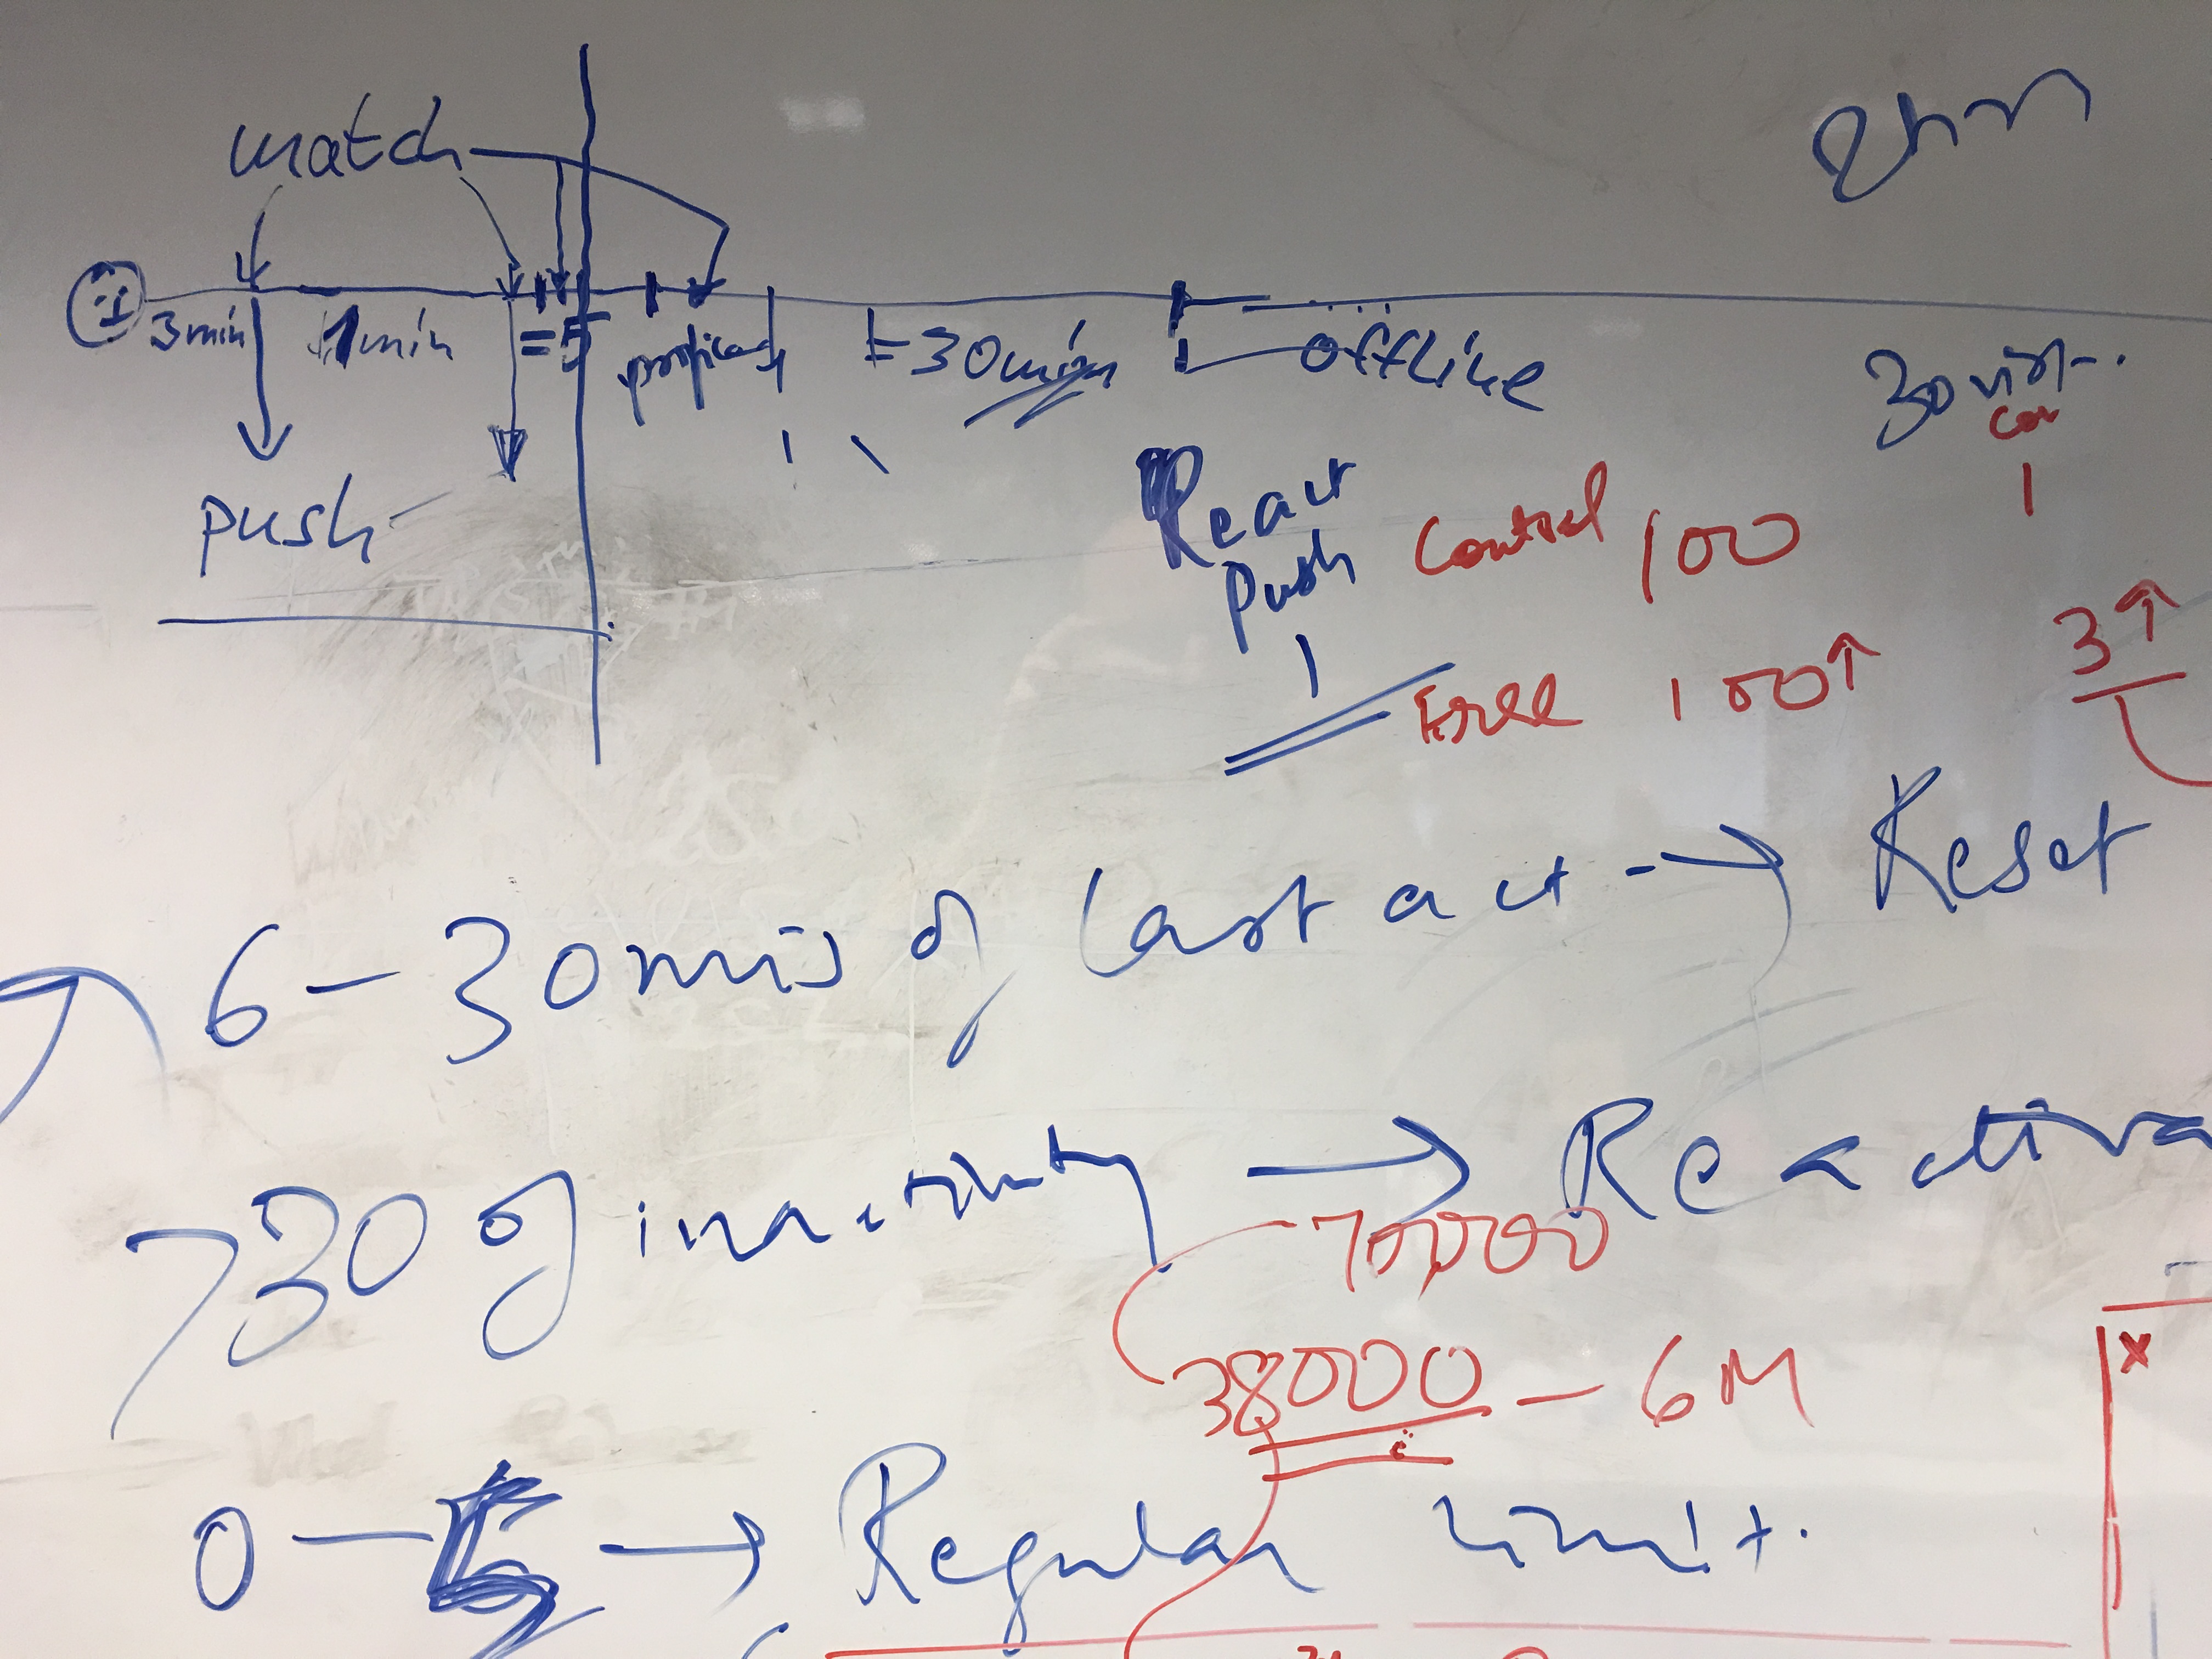 match
3min 1min =5 =30min offline
push
React
Push Control 100
Free 100↑
3↑
6 - 30 mins of last act → Reset
>30 of inactivity → Reactiva
70000
38000 - 6M
x
0 - → Regular limit.